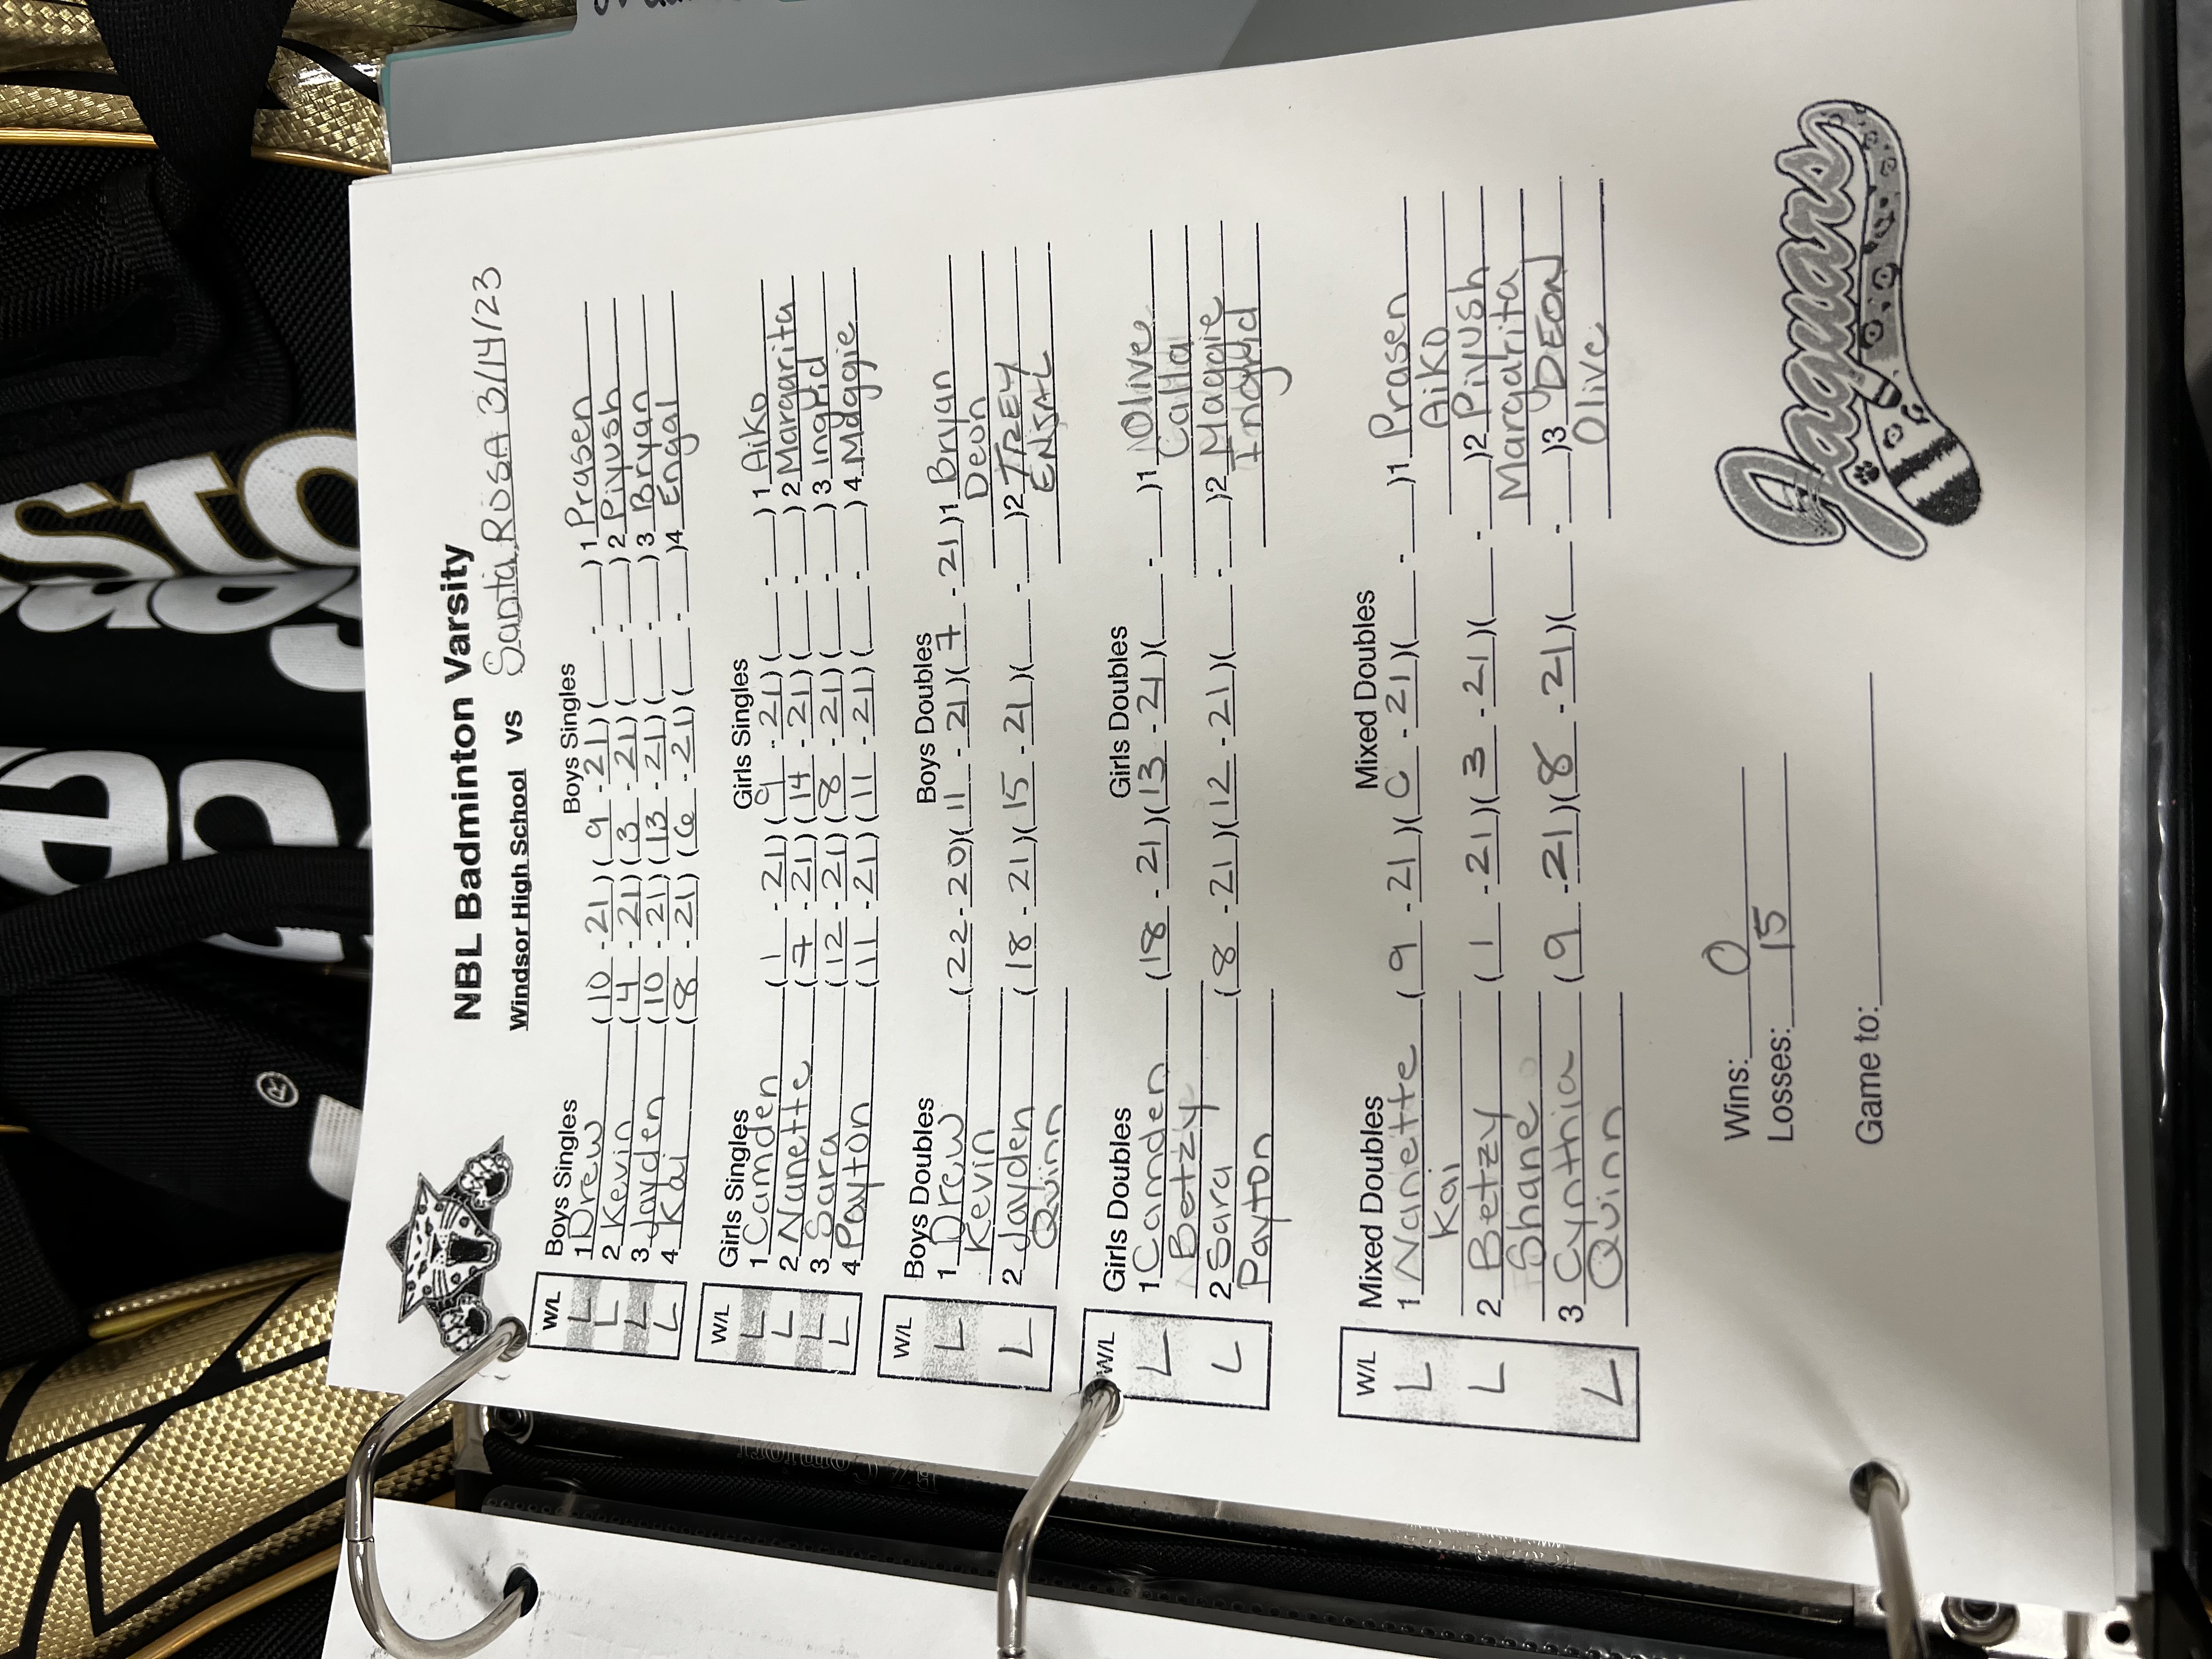 NBL Badminton Varsity
Windsor High School vs Santa Rosa 3/14/23
W/L Boys Singles Boys Singles
L 1 Drew (10 - 21) (9 - 21) ( - ) 1 Prasen
L 2 Kevin (4 - 21) (3 - 21) ( - ) 2 Piyush
L 3 Jayden (10 - 21) (13 - 21) ( - ) 3 Bryan
L 4 Kai (8 - 21) (6 - 21) ( - ) 4 Engal
W/L Girls Singles Girls Singles
L 1 Camden (1 - 21) (9 - 21) ( - ) 1 Aiko
L 2 Nanette (7 - 21) (14 - 21) ( - ) 2 Margarita
L 3 Sara (12 - 21) (8 - 21) ( - ) 3 Ingrid
L 4 Payton (11 - 21) (11 - 21) ( - ) 4 Maggie
W/L Boys Doubles Boys Doubles
L 1 Drew (22 - 20) (11 - 21) (7 - 21) 1 Bryan
Kevin Deon
L 2 Jayden (18 - 21) (15 - 21) ( - ) 2 TREY
Quinn
W/L Girls Doubles Girls Doubles
L 1 Camden (18 - 21) (13 - 21) ( - ) 1 Olive
Betzy Calla
L 2 Sara (8 - 21) (12 - 21) ( - ) 2 Maggie
Payton Ingrid
W/L Mixed Doubles Mixed Doubles
L 1 Nanette (9 - 21) (0 - 21) ( - ) 1 Prasen
Kai Aiko
L 2 Betzy (1 - 21) (3 - 21) ( - ) 2 Piyush
Shane Margarita
L 3 Cynthia (9 - 21) (8 - 21) ( - ) 3 DEON
Quinn Olive
Wins: 0
Losses: 15
Game to:
Jaguars